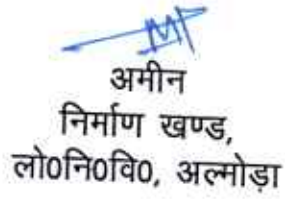 अमीन
निर्माण खण्ड,
लो0नि0वि0, अल्मोड़ा